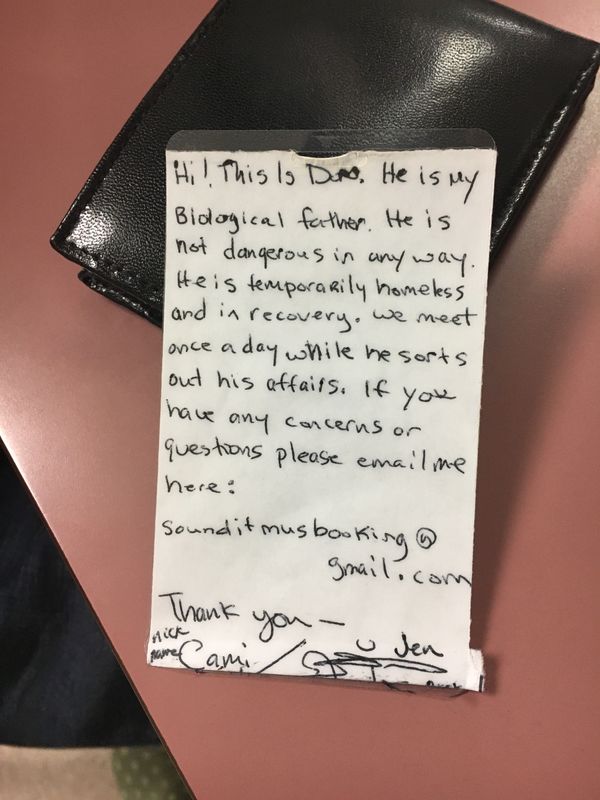 Hi! This Is He is My
Biological father. He is
not dangerous in any way.
He is temporarily homeless
and in recovery. We meet
once a day while he sorts
out his affairs. If you
have any concerns or
questions please email me
here:
sounditmusbooking@
gmail.com
Thank you —
nick
name Cami / Jen